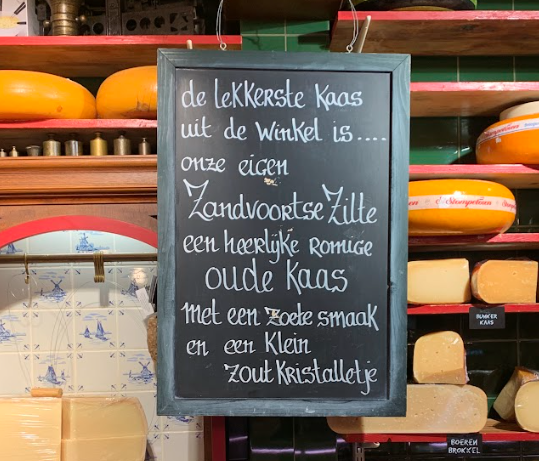 de leKKerste Kaas
uit de winKel is....
onze eigen
Zandvoortse Zilte
een heerlijke romige
oude Kaas
met een zoete smaak
en een Klein
zout Kristalletje
BUNKER
KAAS
BOEREN
BROKKEL